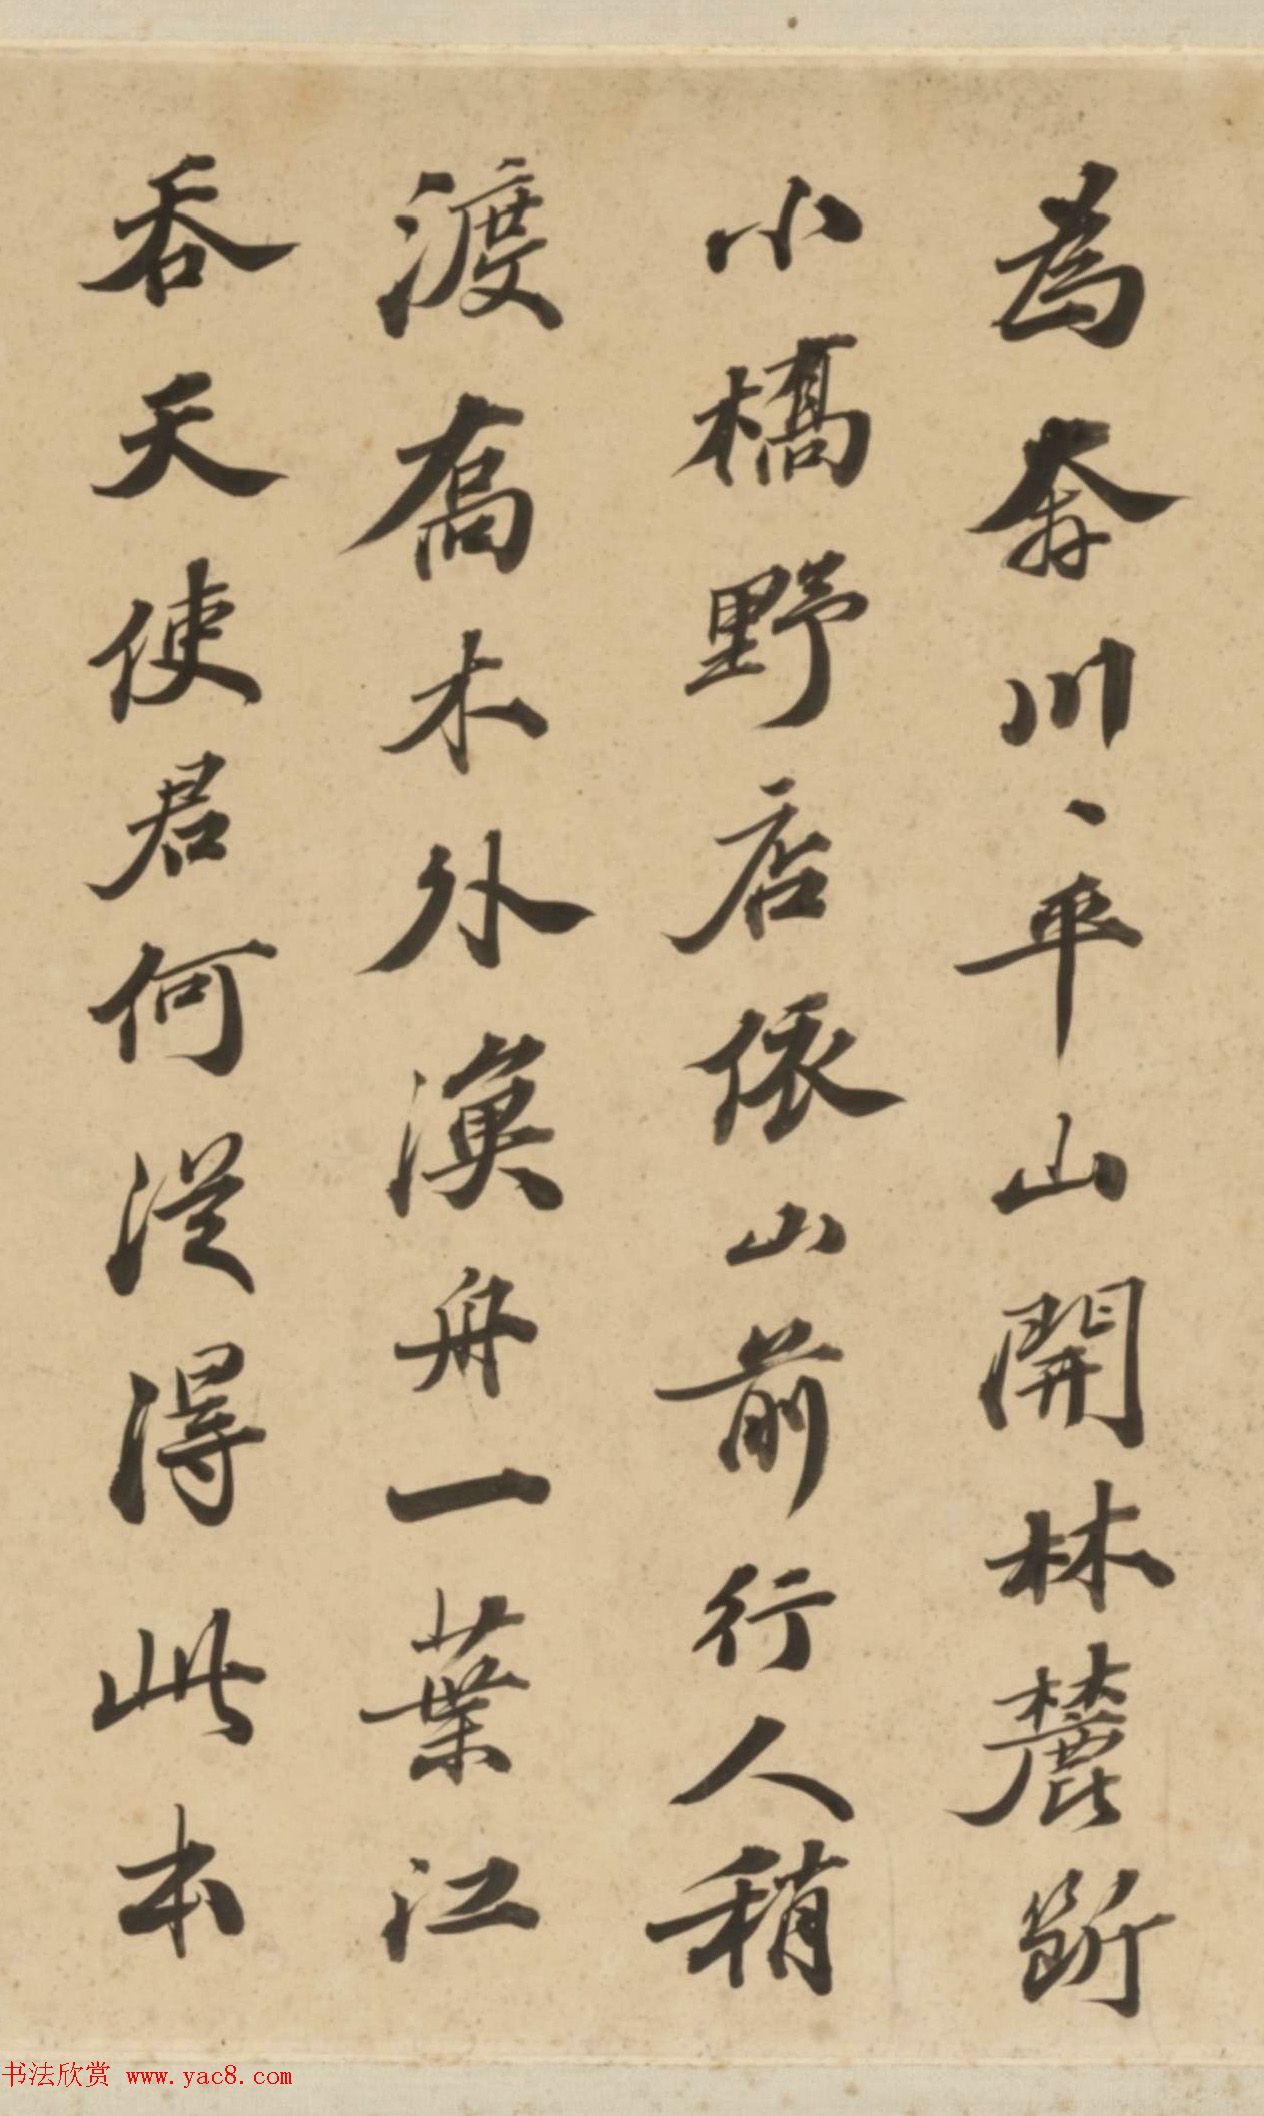 為奔川川平山開林麓斷
小橋野店依山前行人稍
渡喬木外漁舟一葉江
吞天使君何從得此本
书法欣赏 www.yac8.com